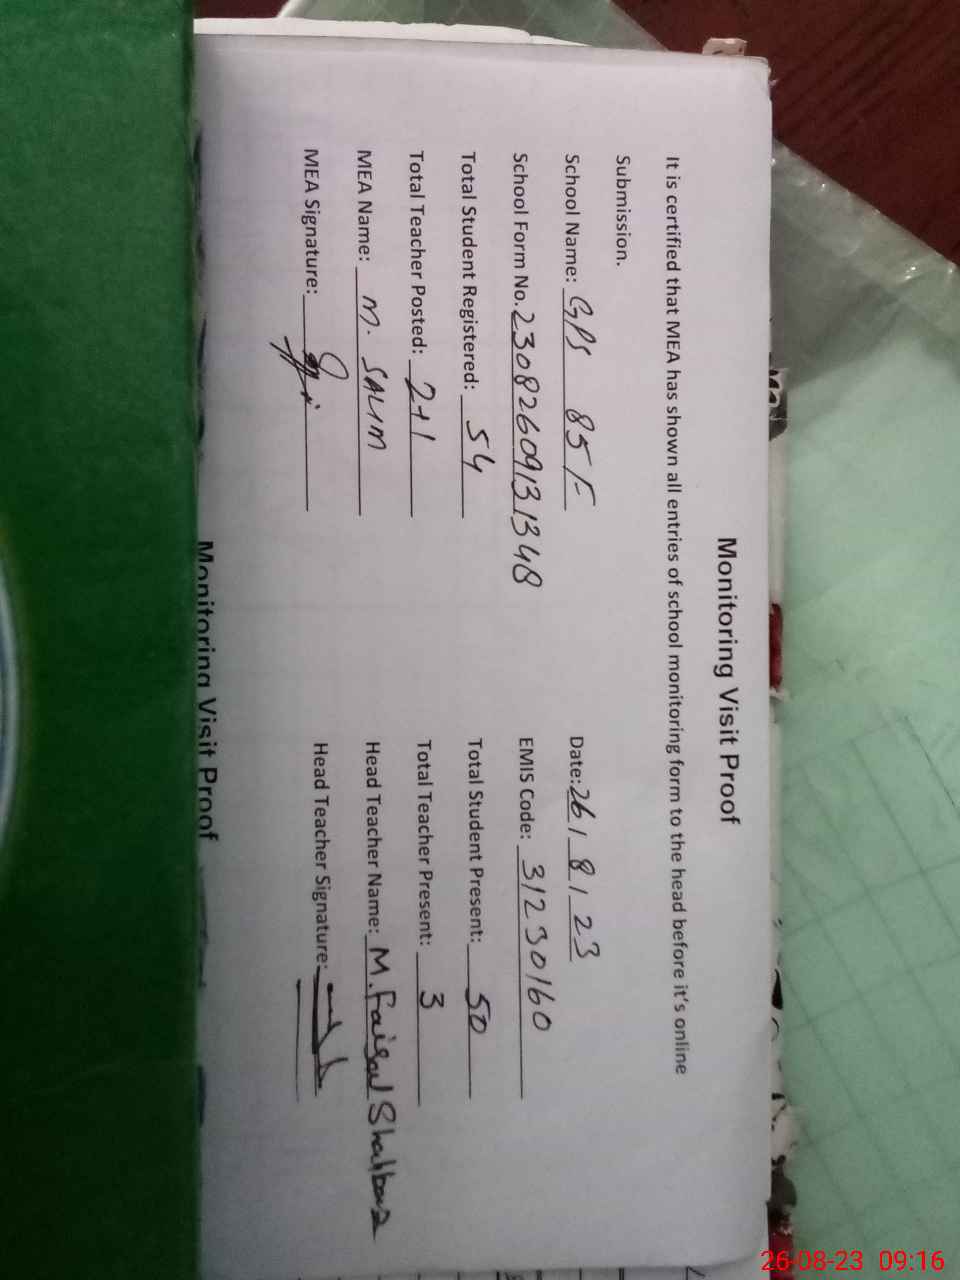 Monitoring Visit Proof
It is certified that MEA has shown all entries of school monitoring form to the head before it's online
Submission.
School Name: GPS 85/F Date: 26/8/23
School Form No. 23082609131348 EMIS Code: 31230160
Total Student Registered: 54 Total Student Present: 50
Total Teacher Posted: 2+1 Total Teacher Present: 3
MEA Name: M. SALIM Head Teacher Name: M. Faisal Shahbaz
MEA Signature: Head Teacher Signature:
Monitoring Visit Proof
26-08-23 09:16